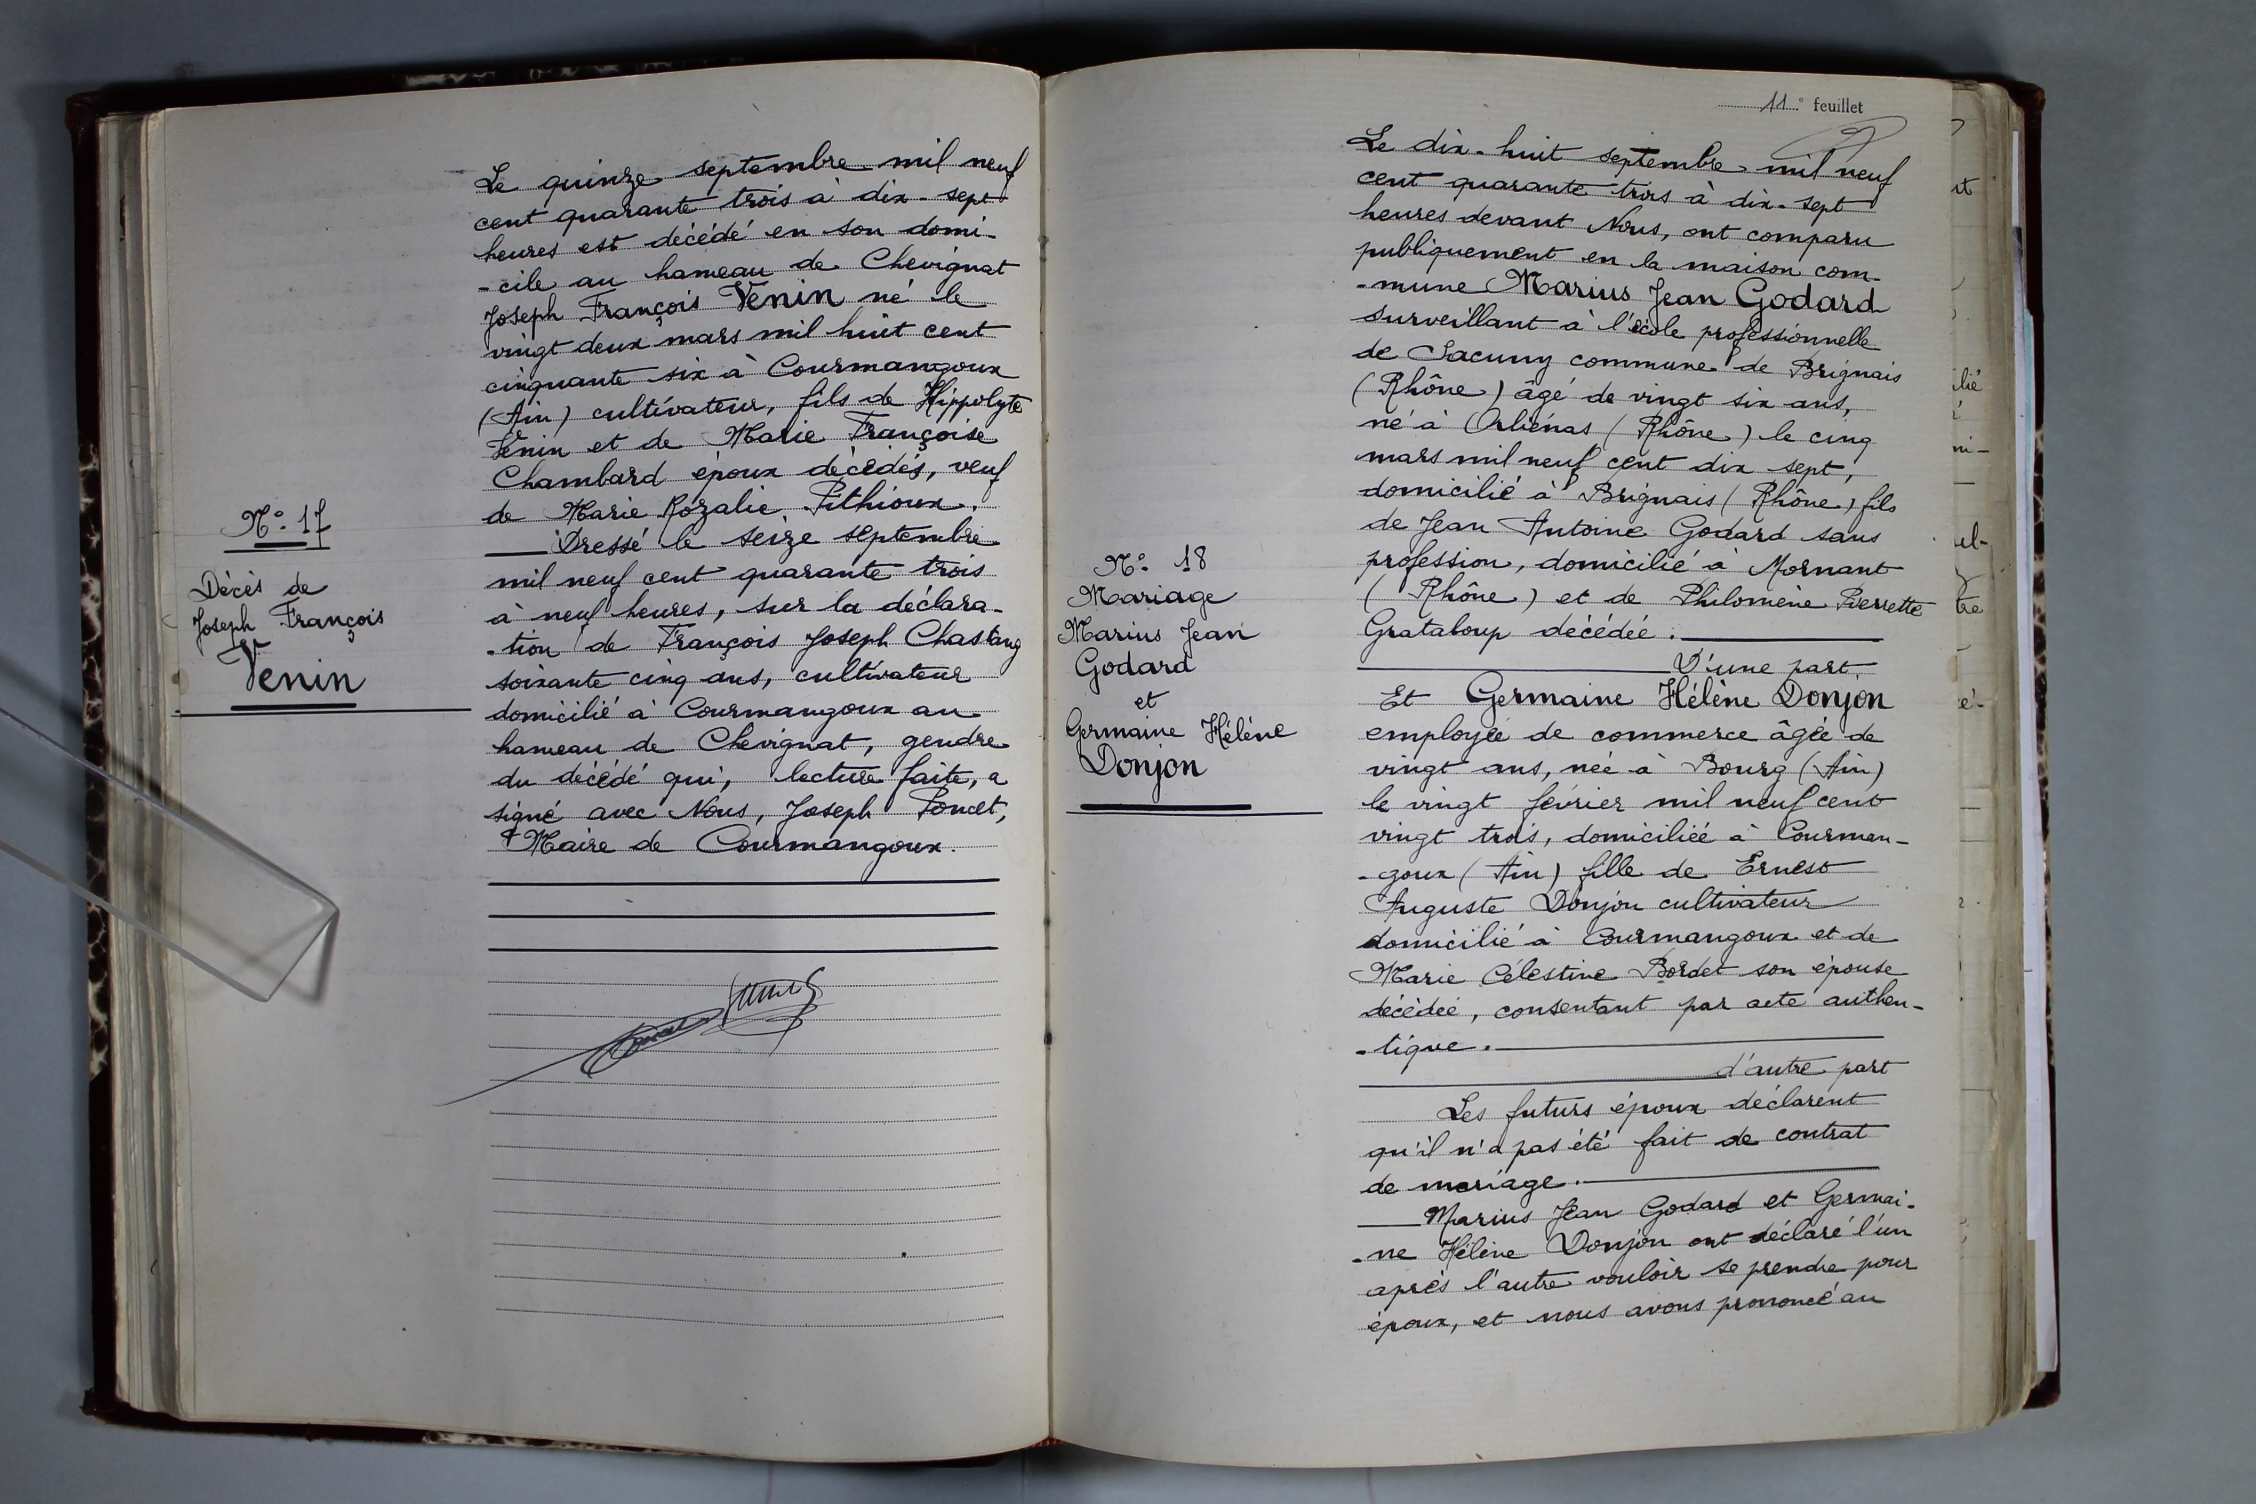 Le quinze septembre mil neuf
cent quarante trois à dix-sept
heures est décédé en son domi-
-cile au hameau de Chevignat
Joseph François Venin né le
vingt deux mars mil huit cent
cinquante six à Courmangoux
(Ain) cultivateur, fils de Hippolyte
Venin et de Marie Françoise
Chambard époux décédés, veuf
de Marie Rozalie Pithioux.
Dressé le seize septembre
mil neuf cent quarante trois
à neuf heures, sur la déclara-
-tion de François Joseph Chastang
soixante cinq ans, cultivateur
domicilié à Courmangoux au
hameau de Chevignat, gendre
du décédé qui, lecture faite, a
signé avec Nous, Joseph Poncet,
Maire de Courmangoux.
No 17
Décès de
Joseph François
Venin
11e feuillet
Le dix-huit septembre mil neuf
cent quarante trois à dix-sept
heures devant Nous, ont comparu
publiquement en la maison com-
-mune Marius Jean Godard
surveillant à l'école professionnelle
de Sacuny commune de Brignais
(Rhône) âgé de vingt six ans,
né à Orliénas (Rhône) le cinq
mars mil neuf cent dix sept,
domicilié à Brignais (Rhône) fils
de Jean Antoine Godard sans
profession, domicilié à Mornant
(Rhône) et de Philomène Pierrette
Grataloup décédée.
D'une part.
Et Germaine Hélène Donjon
employée de commerce âgée de
vingt ans, née à Bourg (Ain)
le vingt février mil neuf cent
vingt trois, domiciliée à Courman-
-goux (Ain) fille de Ernest
Auguste Donjon cultivateur
domicilié à Courmangoux et de
Marie Célestine Bordet son épouse
décédée, consentant par acte authen-
-tique.
d'autre part
Les futurs époux déclarent
qu'il n'a pas été fait de contrat
de mariage.
Marius Jean Godard et Germai-
-ne Hélène Donjon ont déclaré l'un
après l'autre vouloir se prendre pour
époux, et nous avons prononcé au
No 18
Mariage
Marius Jean
Godard
et
Germaine Hélène
Donjon